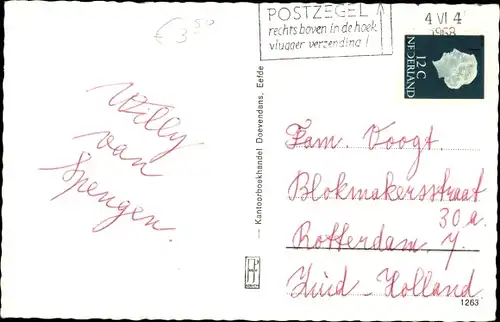 € 3,50
POSTZEGEL
rechts boven in de hoek
vlugger verzending!
4 VI 4
1968
12 C
NEDERLAND
Willy
van
Spengen.
Kantoorboekhandel Doevendans, Eefde
Fam. Voogt.
Blokmakersstraat
30a.
Rotterdam. 7.
Zuid-Holland
1263